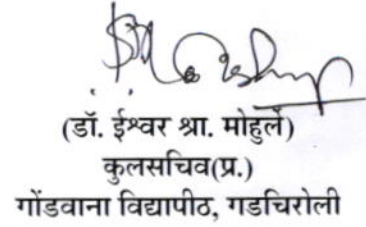 (डॉ. ईश्वर श्रा. मोहुर्ले)
कुलसचिव(प्र.)
गोंडवाना विद्यापीठ, गडचिरोली